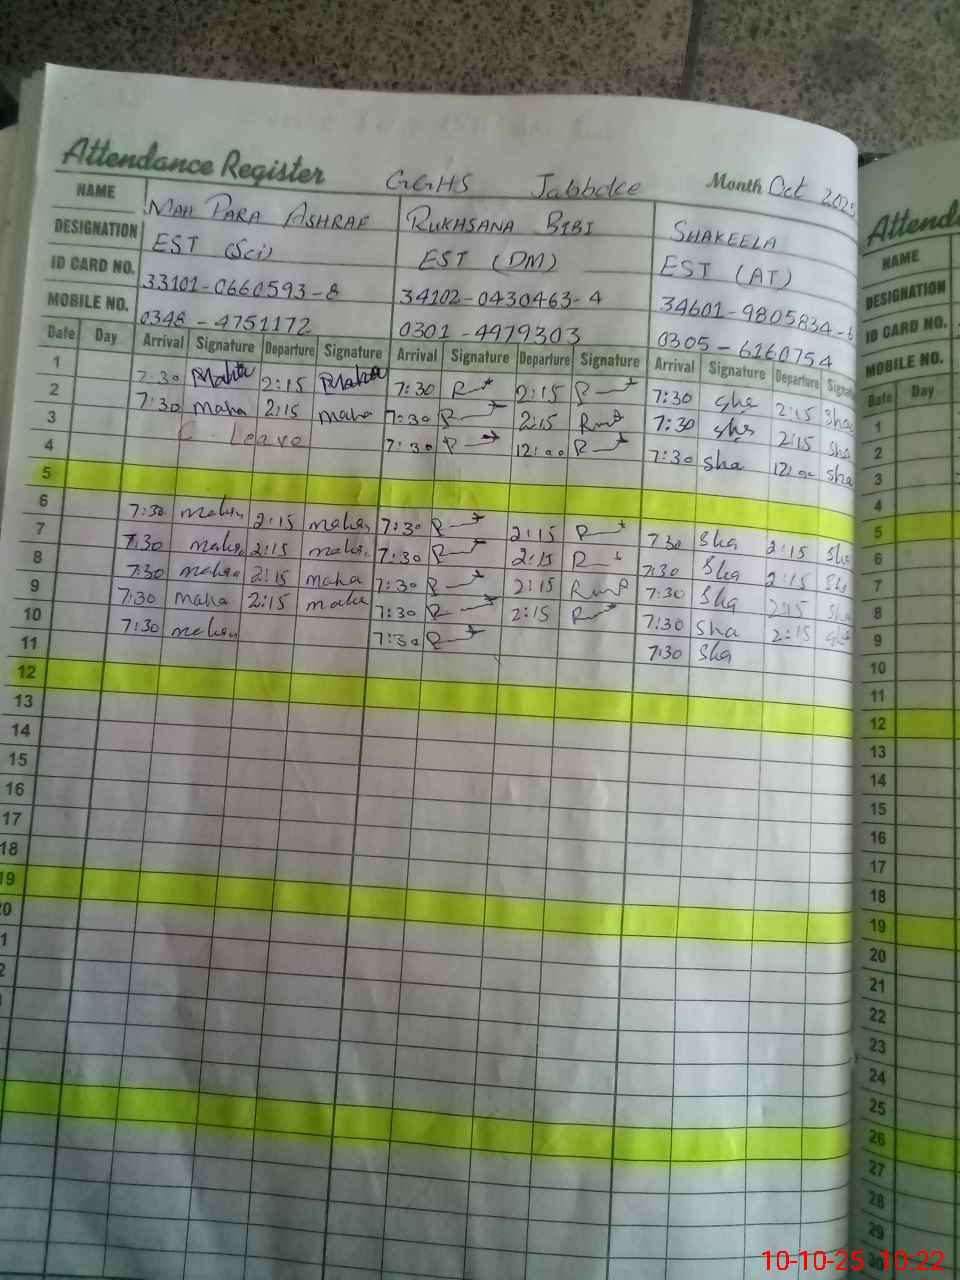 Attendance Register GGHS Jabboke Month Oct 2025
NAME MAH PARA ASHRAF RUKHSANA BIBI SHAKEELA
DESIGNATION EST (Sci) EST (DM) EST (AT)
ID CARD NO. 33101-0660593-8 34102-0430463-4 34601-9805834-6
MOBILE NO. 0348-4751172 0301-4979303 0305-6160754
Date Day Arrival Signature Departure Signature Arrival Signature Departure Signature Arrival Signature Departure Signatu
1 7:30 Maha 2:15 Maha 7:30 R 2:15 R 7:30 sha 2:15 sha
2 7:30 maha 2:15 maha 7:30 R 2:15 7:30 sha 2:15 sha
3 C. Leave 7:30 R 12:00 R 7:30 sha 12:00 sha
4
5
6 7:30 maha 2:15 maha 7:30 R 2:15 R 7:30 sha 2:15 sha
7 7:30 maha 2:15 maha 7:30 R 2:15 R 7:30 sha 2:15 sha
8 7:30 maha 2:15 maha 7:30 R 2:15 7:30 sha 2:15 sha
9 7:30 maha 2:15 maha 7:30 R 2:15 R 7:30 sha 2:15
10 7:30 maha 7:30 R 7:30 sha
11
12
13
14
15
16
17
18
19
0
1
2
Attenda
NAME
DESIGNATION
ID CARD NO.
MOBILE NO.
Date Day
1
2
3
4
5
6
7
8
9
10
11
12
13
14
15
16
17
18
19
20
21
22
23
24
25
26
27
28
29
30
10-10-25 10:22